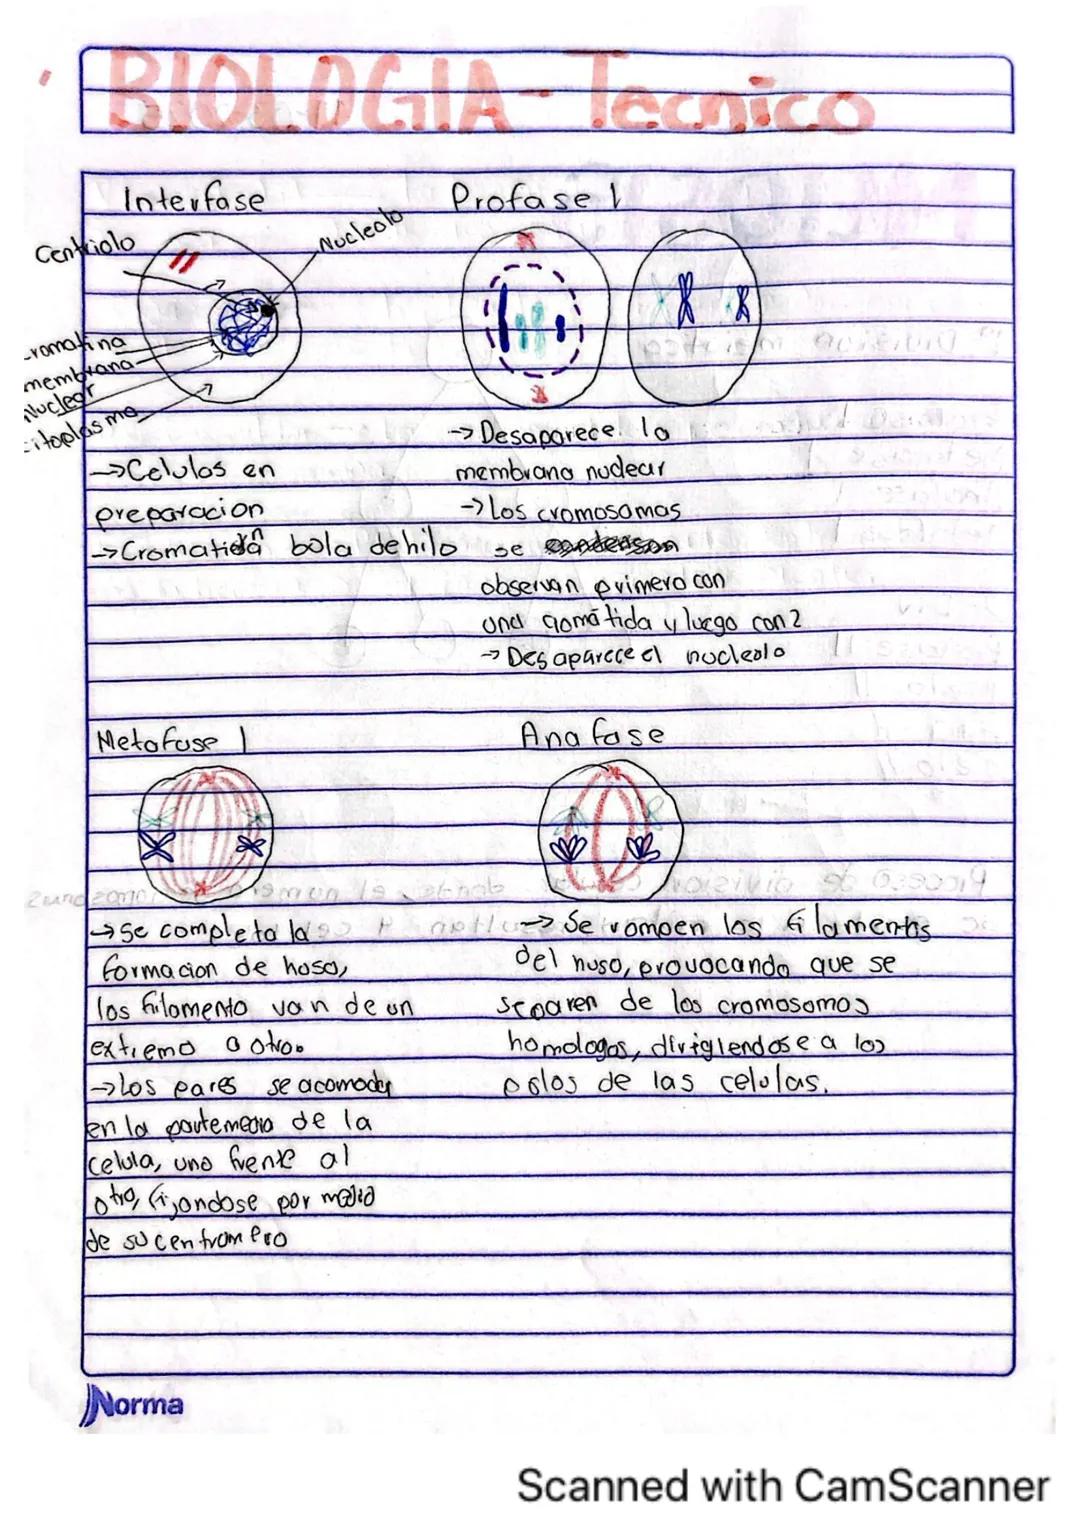 BIOLOGIA - Tecnico
Interfase
Centriolo
Nucleolo
cromatina
membrana
Nuclear
citoplasma
→Celulas en
preparacion
bola de hilo
Profase 1
→Desaparece la
membrana nuclear
→Los cromosomas
se
observan primero con
una cromátida y luego con 2
→Desaparece el nucleolo
Metafase 1
→Se completa la
formacion de huso,
los filamento van de un
extremo a otro.
→Los pares se acomoda
en la parte media de la
celula, uno frente al
otro, fijandose por medio
de su centromero
Anafase
→ Se rompen los filamentos
del huso, provocando que se
separen de los cromosomas
homologos, dirigiendose a los
polos de las celulas.
Norma
Scanned with CamScanner